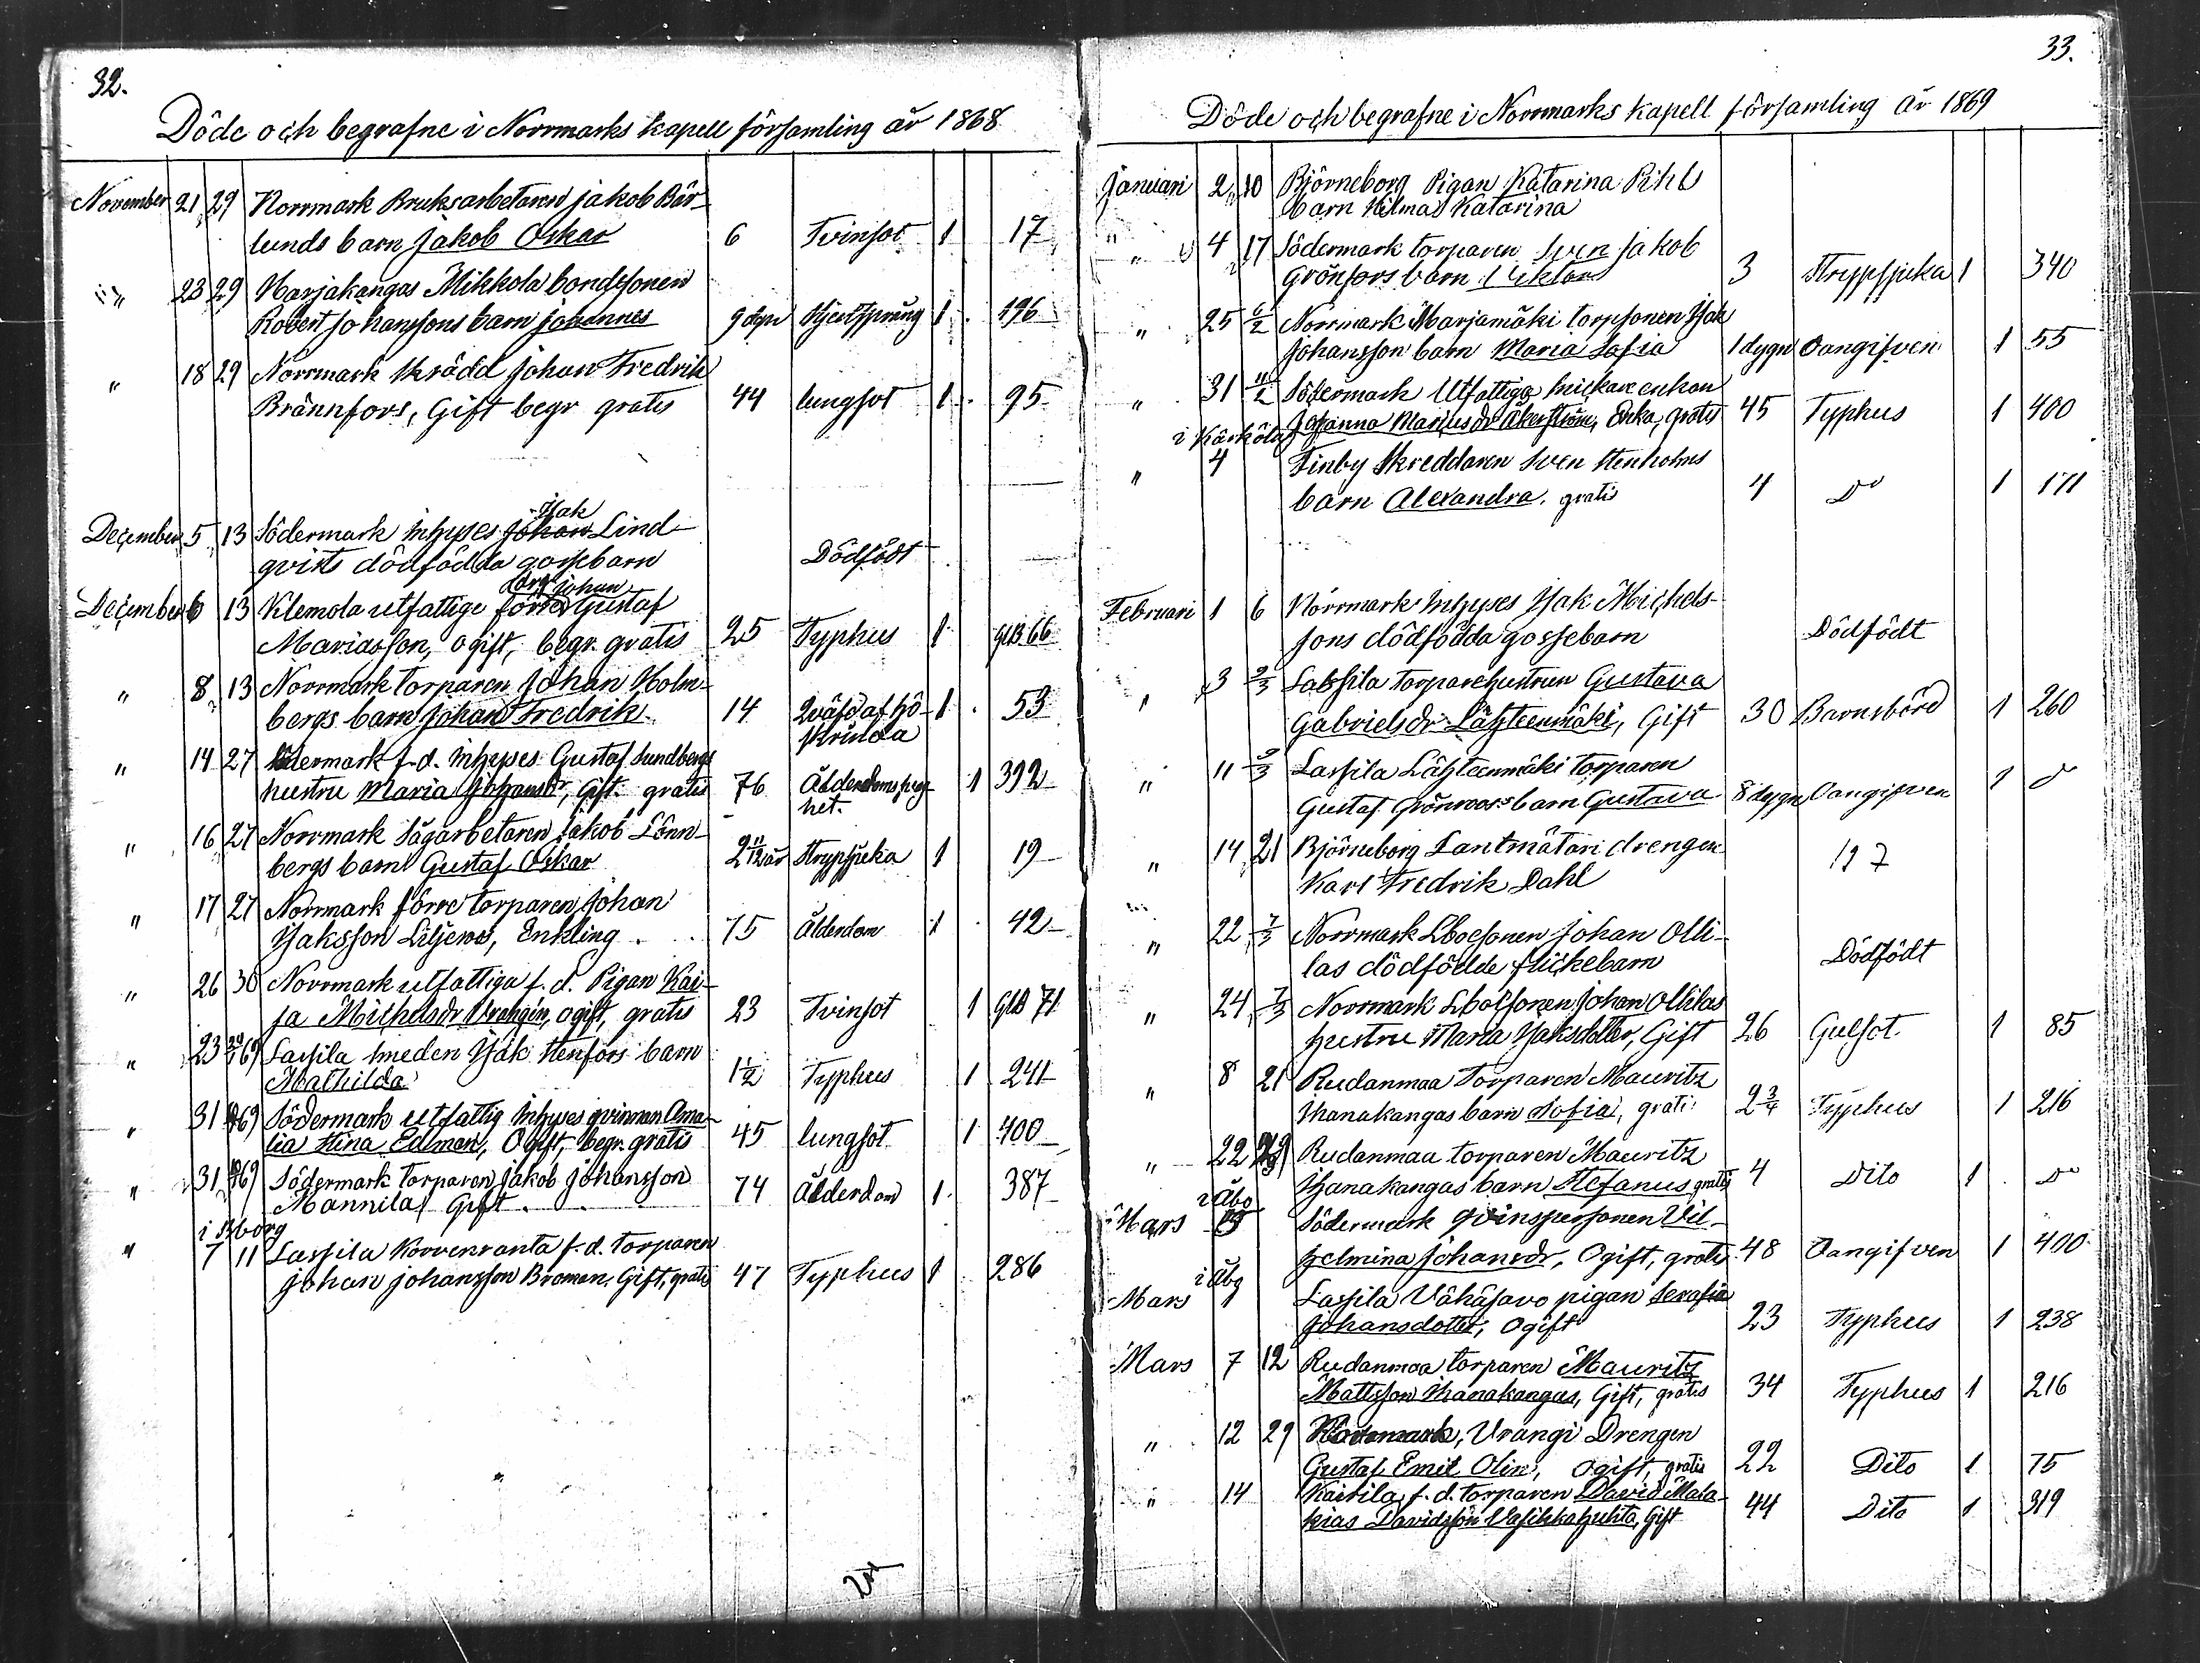 32.
Döde och begrafne i Norrmarks kapell församling år 1868
November 21 29 Norrmark Bruksarbetaren Jakob Bär-
lunds barn Jakob Oskar 6 Tvinsot 1 17
" 23 29 Harjakangas Mikkola bondesonen
Robert Johanssons barn Johannes 9 dgr Hjertsprång 1 196
" 18 29 Norrmark Skrädd Johan Fredrik
Brännfors, Gift begr gratis 44 lungsot 1 95
Isak
December 5 13 Södermark Inhyses Johan Lind-
qvists dödfödda gossebarn Dödfödt
Johan
December 6 13 Klemola utfattige förre Gustaf
Mariasson, ogift, begr. gratis 25 Typhus 1 66
" 8 13 Norrmark torparen Johan Holm-
bergs barn Johan Fredrik 14 1 53
" 14 27 f.d. Inhyses Gustaf Sundbergs
hustru Maria Johansdr, Gift. gratis 76 1 392
het.
" 16 27 Norrmark Sågarbetaren Jakob Lönn-
bergs barn Gustaf Oskar 2 11/12 år Strypsjuka 1 19
" 17 27 Norrmark förre torparen Johan
Isaksson Liljeroos, Enkling 75 Ålderdom 1 42
" 26 30 Norrmark utfattiga f.d. Pigan Kai-
sa Michelsdr Vrangén, ogift, gratis 23 Tvinsot 1 71
" 23 Lassila smeden Isak Stenfors barn
Mathilda 1 1/2 Typhus 1 241
" 31 Södermark utfattig Inhyses qvinnan Ama-
lia Stina Edman, Ogift, begr. gratis 45 lungsot 1 400
" 31 Södermark torparen Jakob Johansson
Mannila, Gift 74 Ålderdom 1 387
i Bborg
" 7 11 Lassila Korvenranta f.d. torparen
Johan Johansson Broman, Gift, gratis 47 Typhus 1 286
33.
Döde och begrafne i Norrmarks kapell församling år 1869
Januari 2 10 Björneborg Pigan Katarina Pihl
barn Hilma Katarina
" 4 17 Södermark torparen Sven Jakob
Grönfors barn 3 Strypsjuka 1 340
" 25 6/2 Norrmark Marjamäki torpsonen Isak
Johansson barn Maria Sofia 1 dygn Oangifven 1 55
" 31 11/2 Södermark Utfattiga enkan
Johanna Mariasdr Åkerström, Enka, gratis 45 Typhus 1 400
i Kärkölä
" 4 Finby Skreddaren Sven Stenholms
barn Alexandra, gratis 4 Do 1 171
Februari 1 6 Norrmark Inhyses Isak Michels-
sons dödfödda gossebarn Dödfödt
" 3 9/3 Lassila torparehustrun Gustava
Gabrielsdr Lähteenmäki, Gift 30 Barnsbörd 1 260
" 11 9/3 Lassila Lähteenmäki torparen
Gustaf Grönroos barn Gustava 8 dygn Oangifven 1 d
" 14 21 Björneborg Lantmätari drengen
Karl Fredrik Dahl 19 7
" 22 7/3 Norrmark Sbolsonen Johan Olli-
las dödfödde flickebarn Dödfödt
" 24 7/3 Norrmark Sbolsonen Johan Ollilas
hustru Maria Isaksdotter, Gift 26 Gulsot 1 85
" 8 21 Rudanmaa Torparen Mauritz
Ihanakangas barn Sofia, gratis 2 3/4 Typhus 1 216
" 22 Rudanmaa torparen Mauritz
Ihanakangas barn Stefanus gratis 4 Dito 1 Do
i Åbo
Mars Södermark Qvinspersonen Vil-
helmina Johansdr, Ogift, gratis 48 Oangifven 1 400
i Åbo
Mars 1 Lassila Vähäsavo pigan Serafia
Johansdotter, ogift 23 Typhus 1 238
Mars 7 12 Rudanmaa torparen Mauritz
Mattsson Ihanakangas, Gift, gratis 34 Typhus 1 216
" 12 29 Norrmark, Vrangi Drengen
Gustaf Emil Olin, ogift, gratis 22 Dito 1 75
" 14 Kairila f.d. torparen David Mala-
kias Davidsson Vasikkahuhta, Gift 44 Dito 1 319